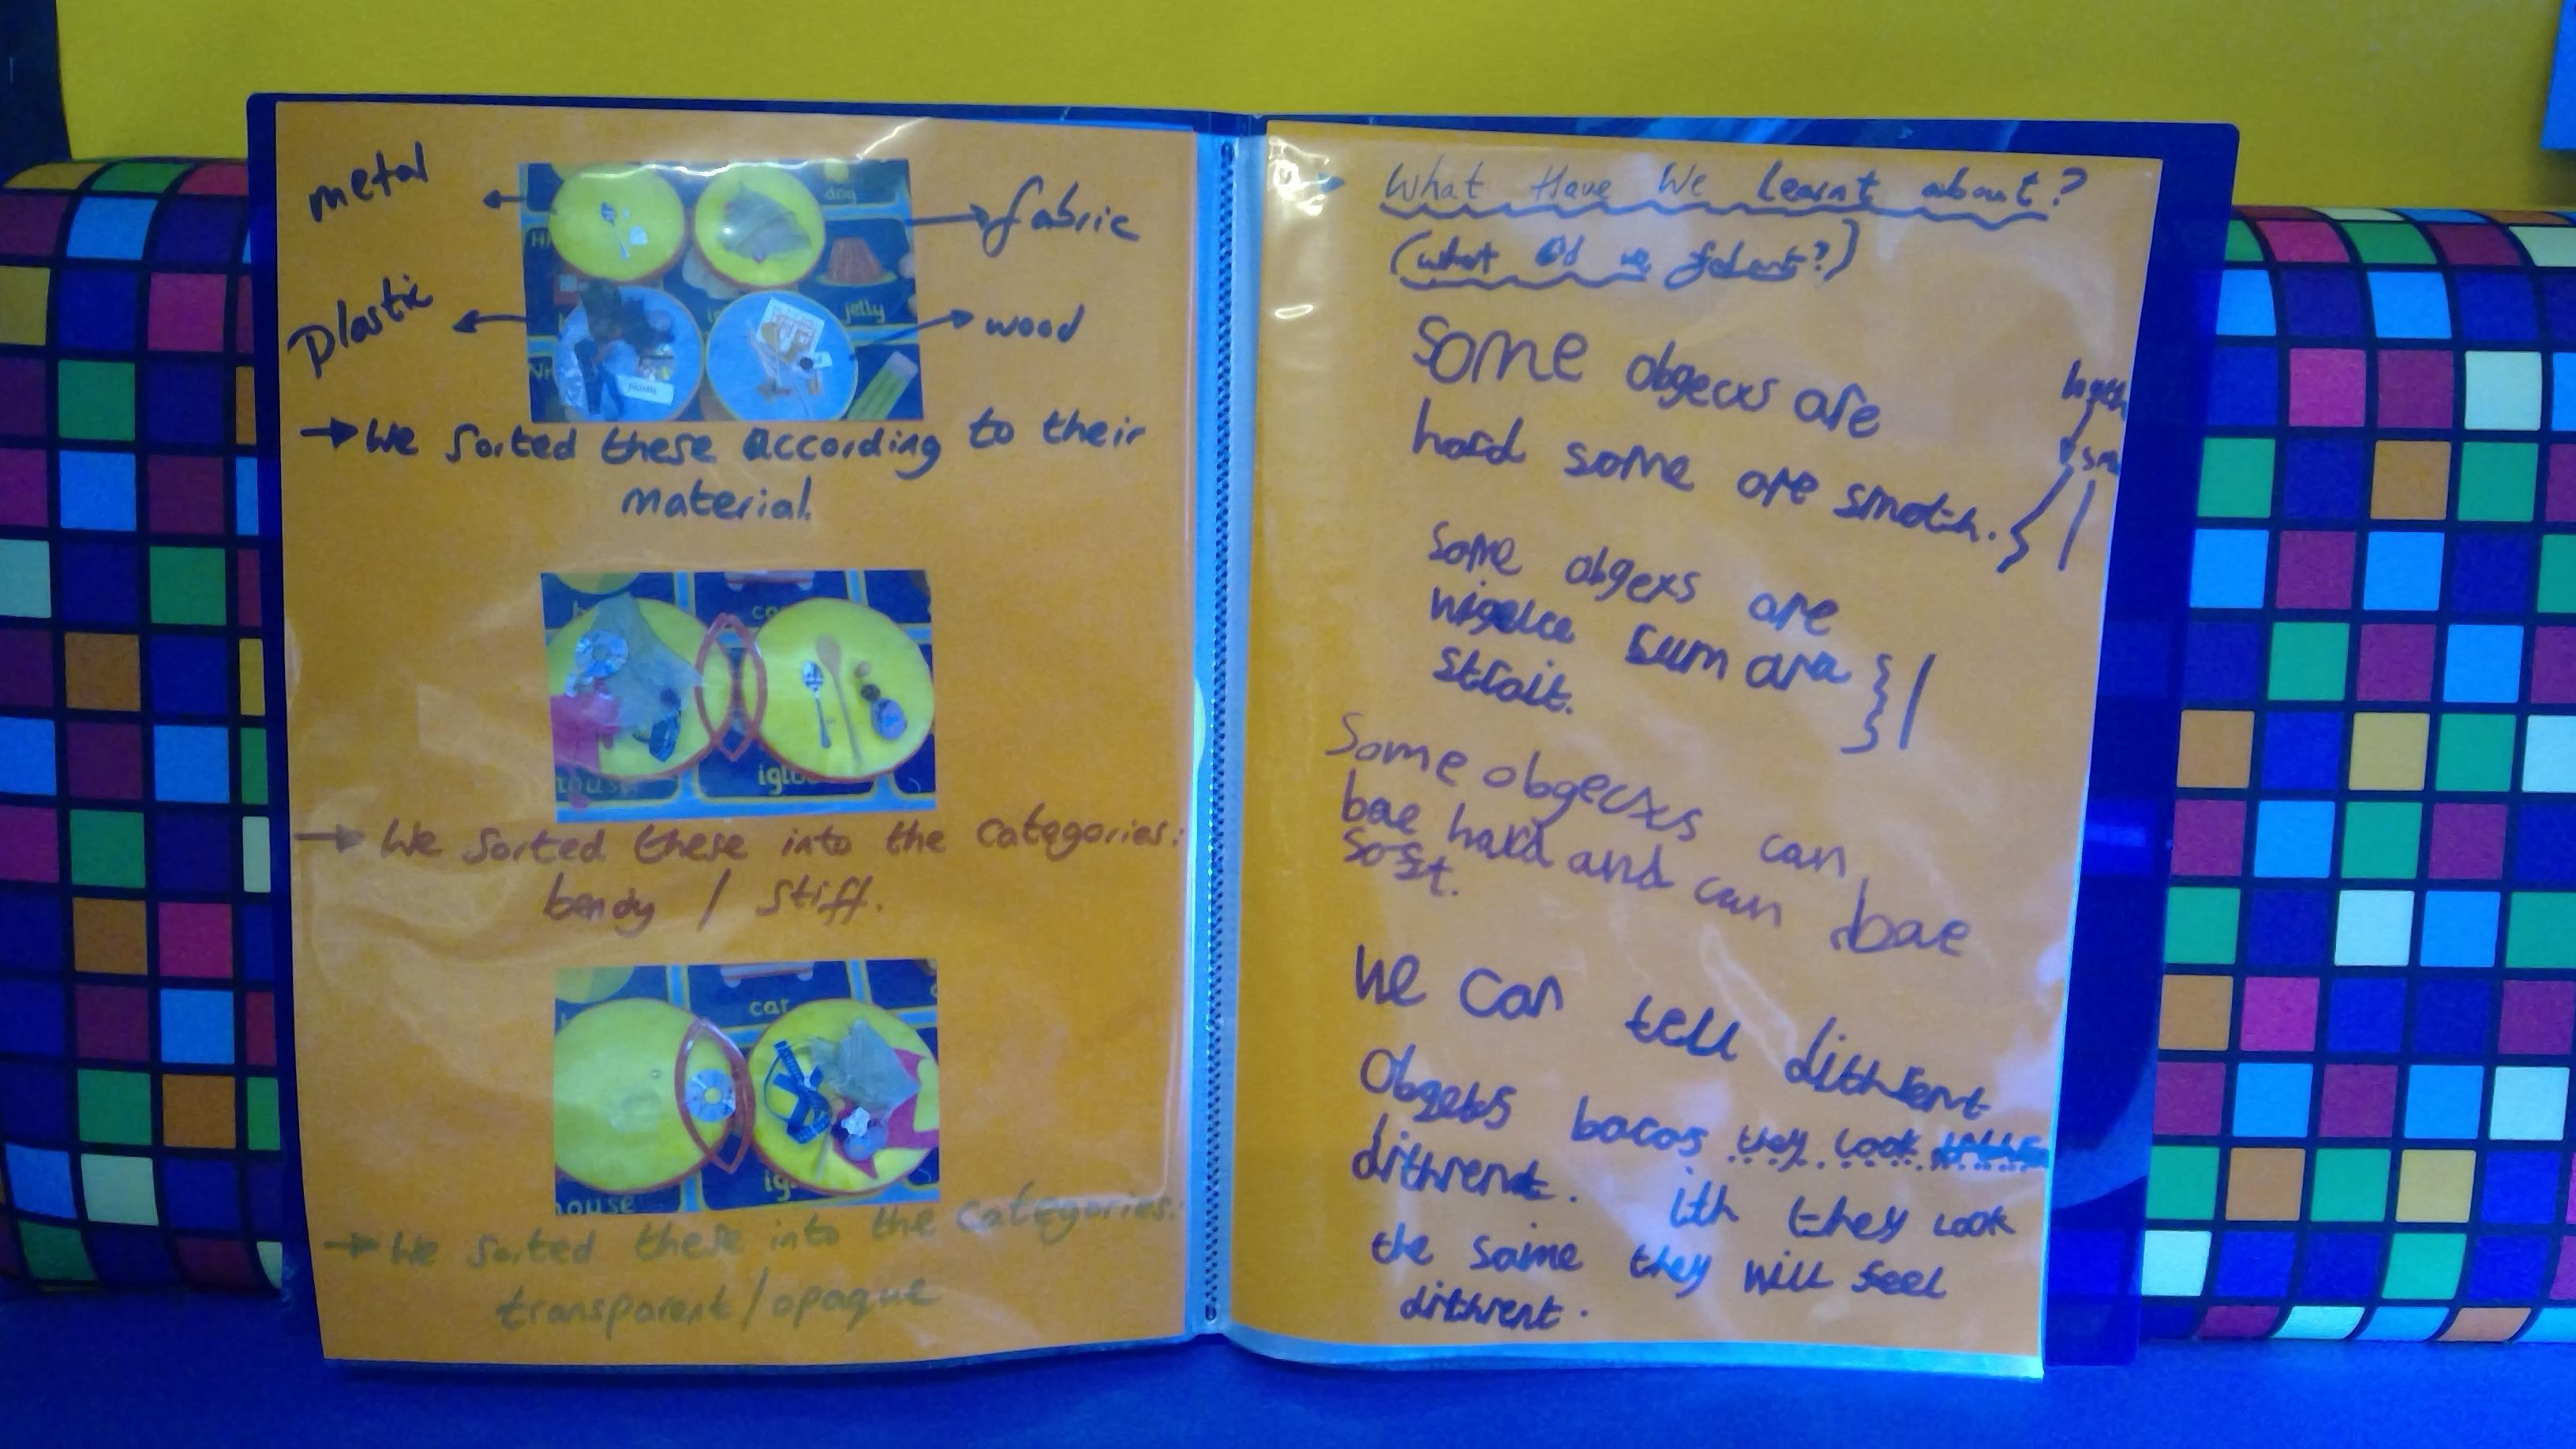 metal
fabric
plastic
wood
dog
jelly
plastic
→ We sorted these according to their
material.
iglo
→ We sorted these into the categories:
bendy / stiff.
car
ig
house
→ We sorted these into the categories:
transparent/opaque
What Have We Learnt about?
(what did we
Some obgecxs are
hard some are smoth.
Some obgexs are
sum ara
strait.
Some obgecxs can
bae hard and can bae
soft.
We can tell dithrent
Obgebs bacos they look
dithrent. ith they look
the same they will feel
dithrent.